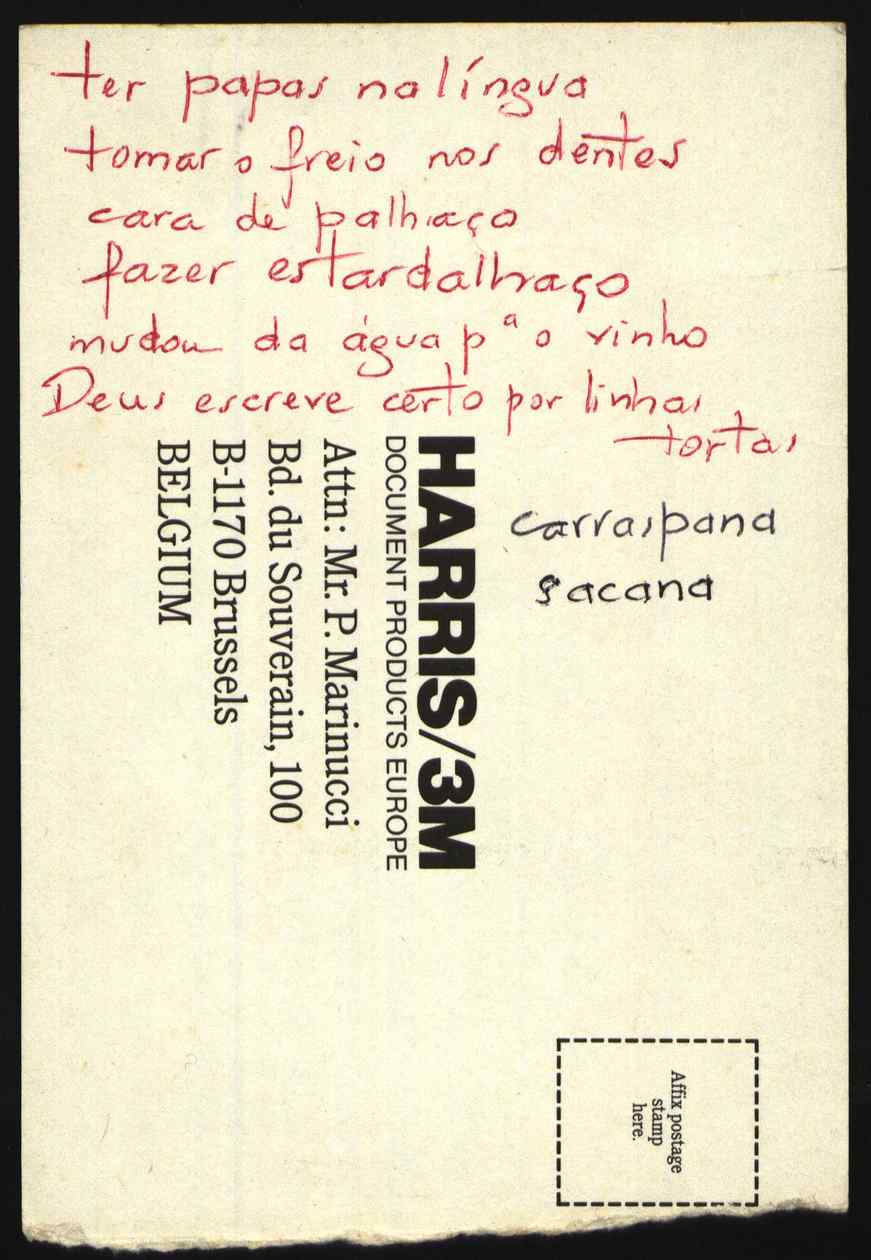 ter papas na língua
tomar o freio nos dentes
cara de palhaço
fazer estardalhaço
mudou da água pª o vinho
Deus escreve certo por linhas
tortas
carraspana
sacana
HARRIS/3M
DOCUMENT PRODUCTS EUROPE
Attn: Mr. P. Marinucci
Bd. du Souverain, 100
B-1170 Brussels
BELGIUM
Affix postage
stamp
here.